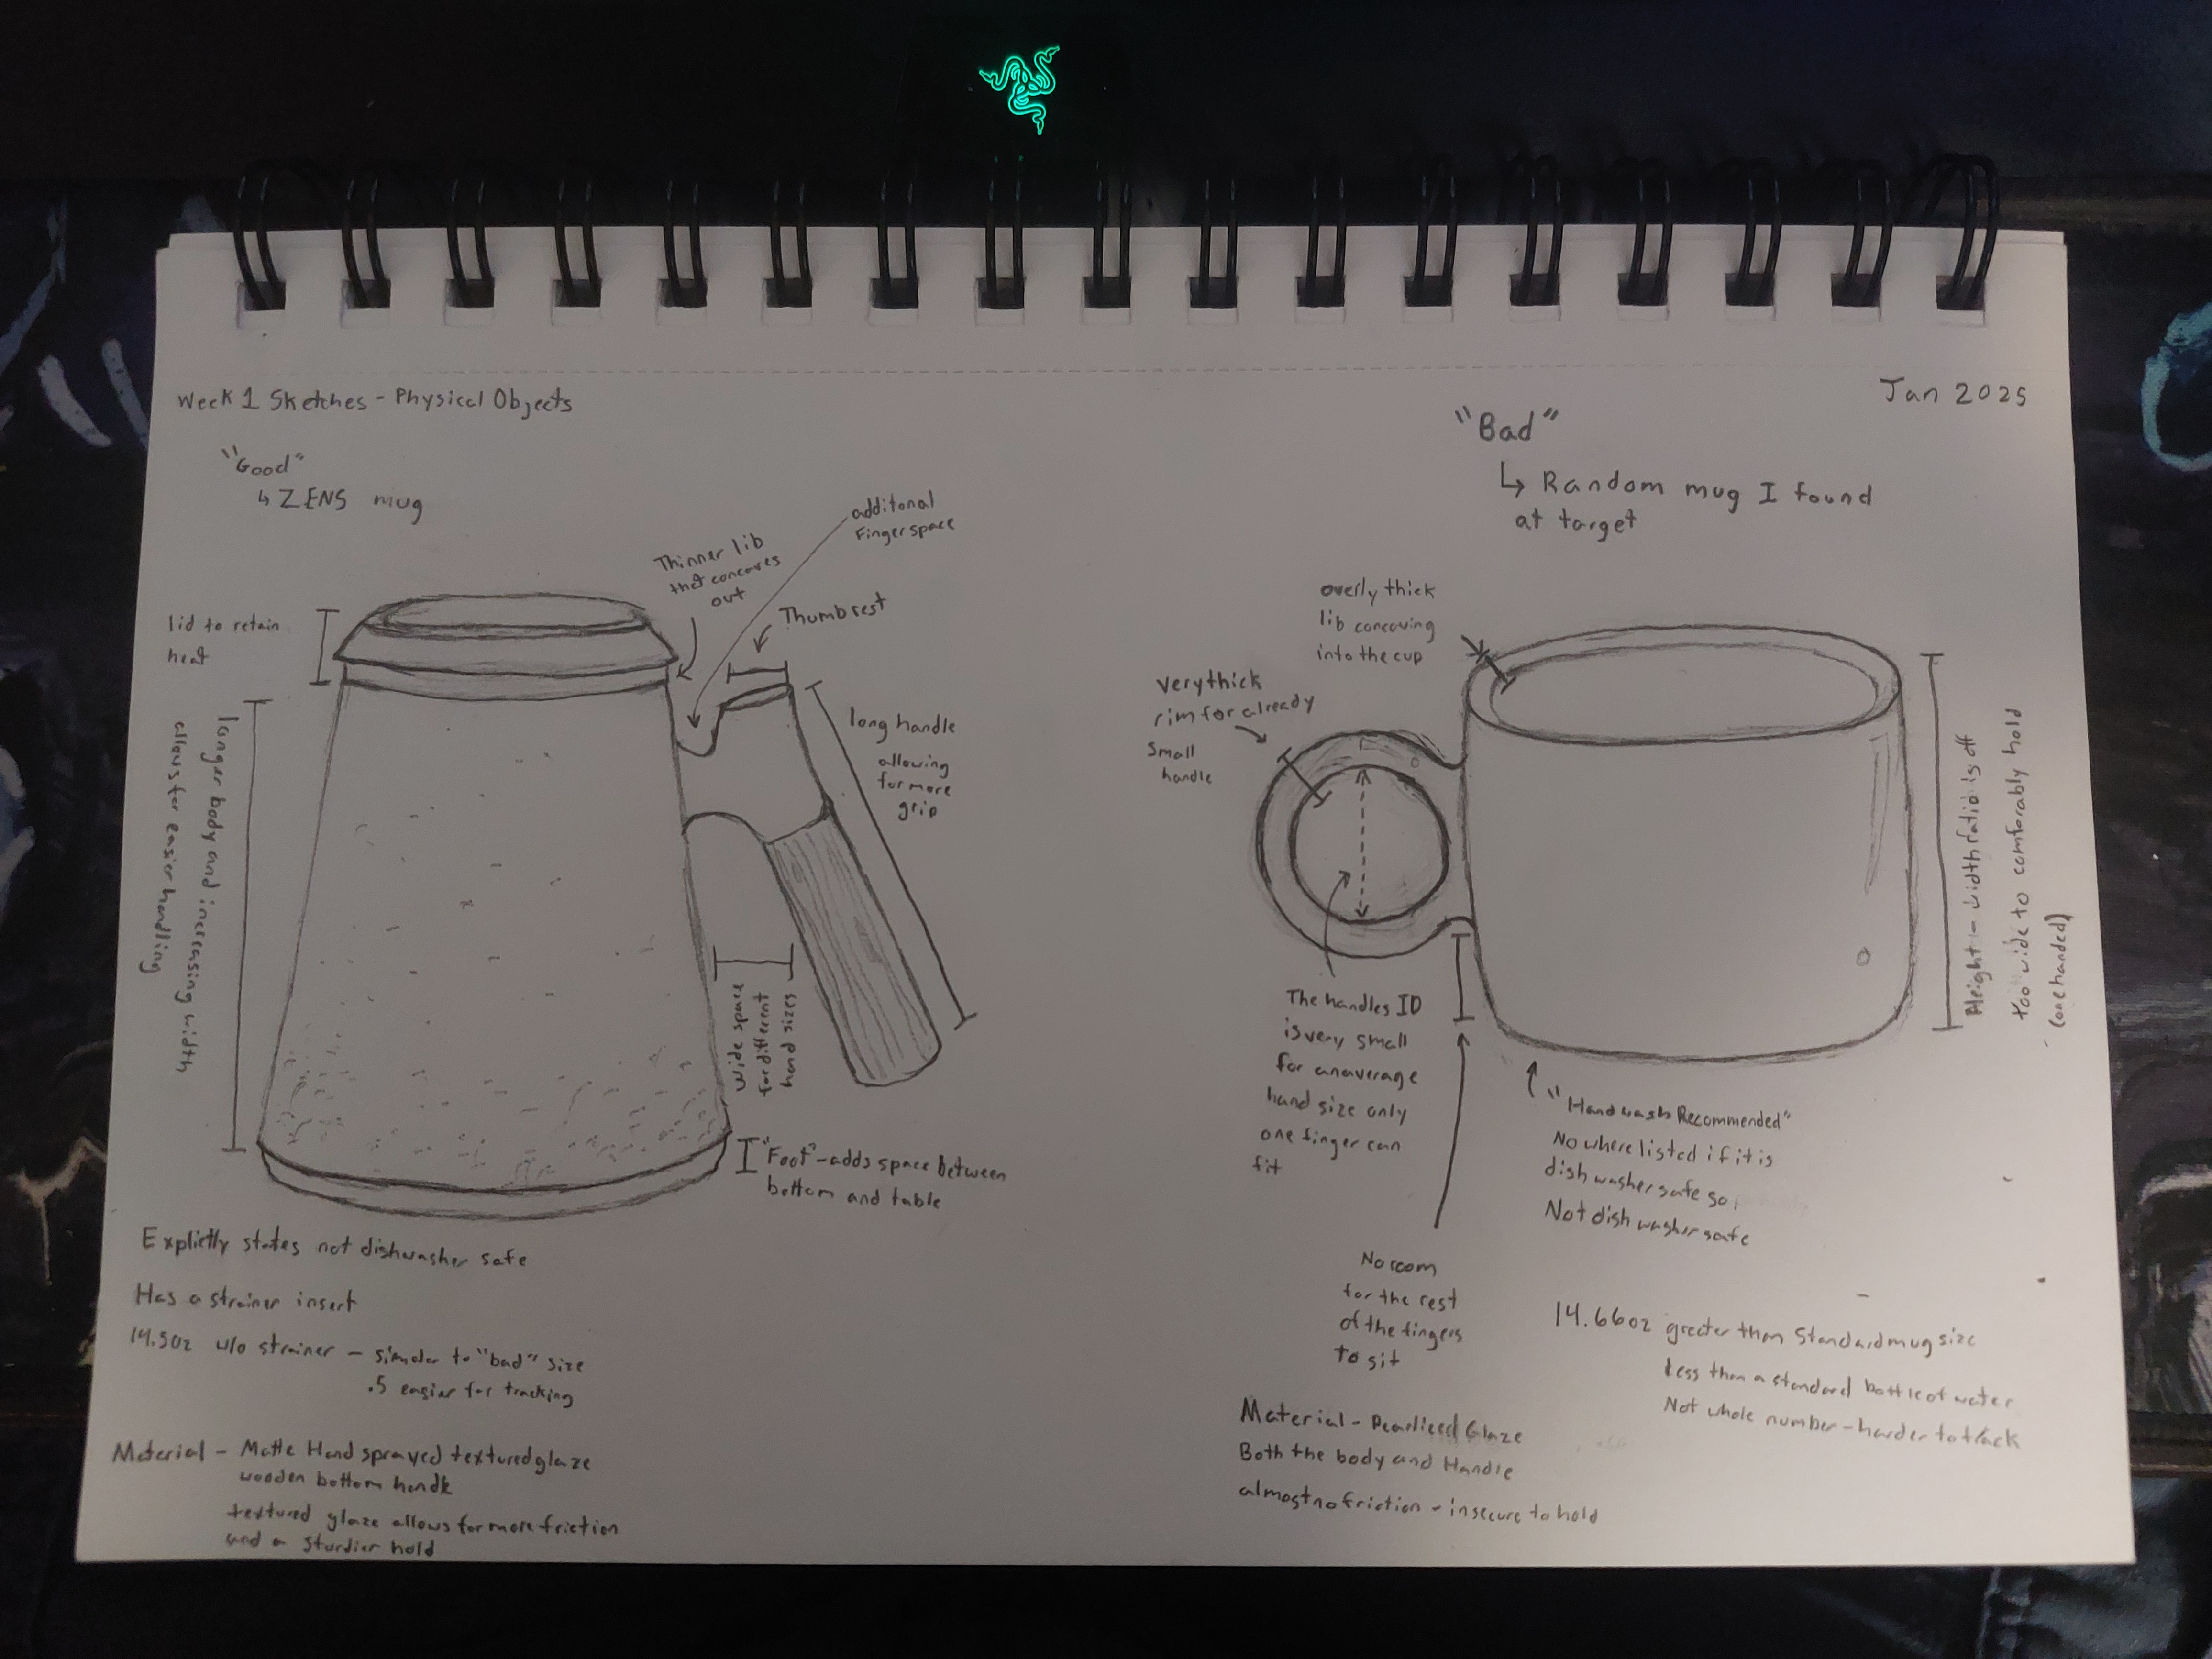 Week 1 Sketches - Physical Objects
Jan 2025
"Good"
↳ ZENS mug
lid to retain
heat
longer body and increasing width
allows for easier handling
Thinner lib
that concaves
out
additional
Finger space
Thumb rest
long handle
allowing
for more
grip
Wide space
for different
hand sizes
"Foot" - adds space between
bottom and table
Explictly states not dishwasher safe
Has a strainer insert
14.5oz w/o strainer - similar to "bad" size
.5 easier for tracking
Material - Matte Hand sprayed textured glaze
wooden bottom handle
textured glaze allows for more friction
and a sturdier hold
"Bad"
↳ Random mug I found
at target
very thick
rim for already
small
handle
overly thick
lib concaving
into the cup
The handles ID
is very small
for an average
hand size only
one finger can
fit
No room
for the rest
of the fingers
to sit
"Handwash Recommended"
No where listed if it is
dish washer safe so,
Not dishwasher safe
Height - width ratio is off
too wide to comforably hold
(one handed)
14.66oz greater than Standard mug size
less than a standard bottle of water
Not whole number - harder to track
Material - Pearlized Glaze
Both the body and Handle
almost no friction - insecure to hold